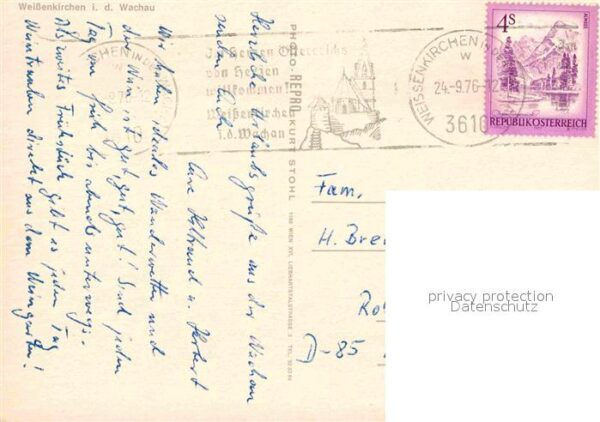 Weißenkirchen i. d. Wachau
Herzliche Urlaubsgrüße aus der Wachau
senden Euch
Eure Heltraud u. Herbert
Wir haben ideales Wanderwetter und
der Wein ist gut, gut, gut! Sind jeden
Tag von früh bis abends unterwegs.
Als zweites Frühstück gibt es jeden Tag
Weintrauben direkt aus dem Weingarten!
PHOTO-REPRO KURT STOHL
1160 WIEN XVI, LIEBHARTSTALSTRASSE
Im Herzen Österreichs
von Herzen
willkommen
Weißenkirchen
i. d. Wachau
WEISSENKIRCHEN IN DER
24.-9.76-12
3610
4S
REPUBLIK ÖSTERREICH
Fam.
H.
D-85
privacy protection
Datenschutz